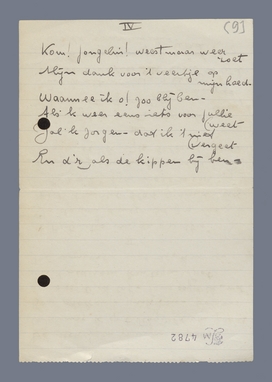 IV
(9)
Kom! Jongelui! weest maar weer
zoet
Mijn dank voor 't veertje op
mijn hoed.
Waarmee ik o! zoo blij ben -
Als ik weer eens iets voor jullie
weet
Zal ik zorgen - dat ik 't niet
vergeet
En d'r als de kippen bij ben
4782